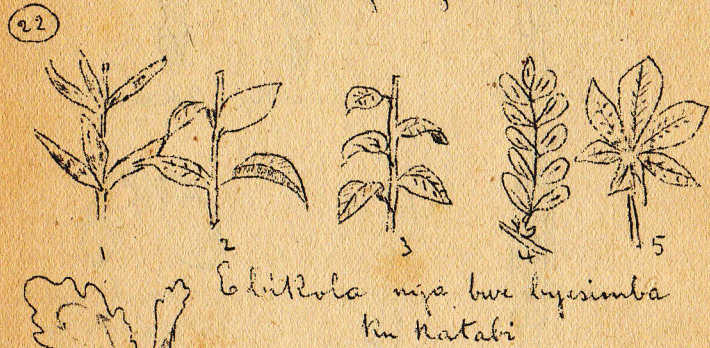 22
1 2 3 4 5
Ebikola nga bwe byesimba
ku katabi